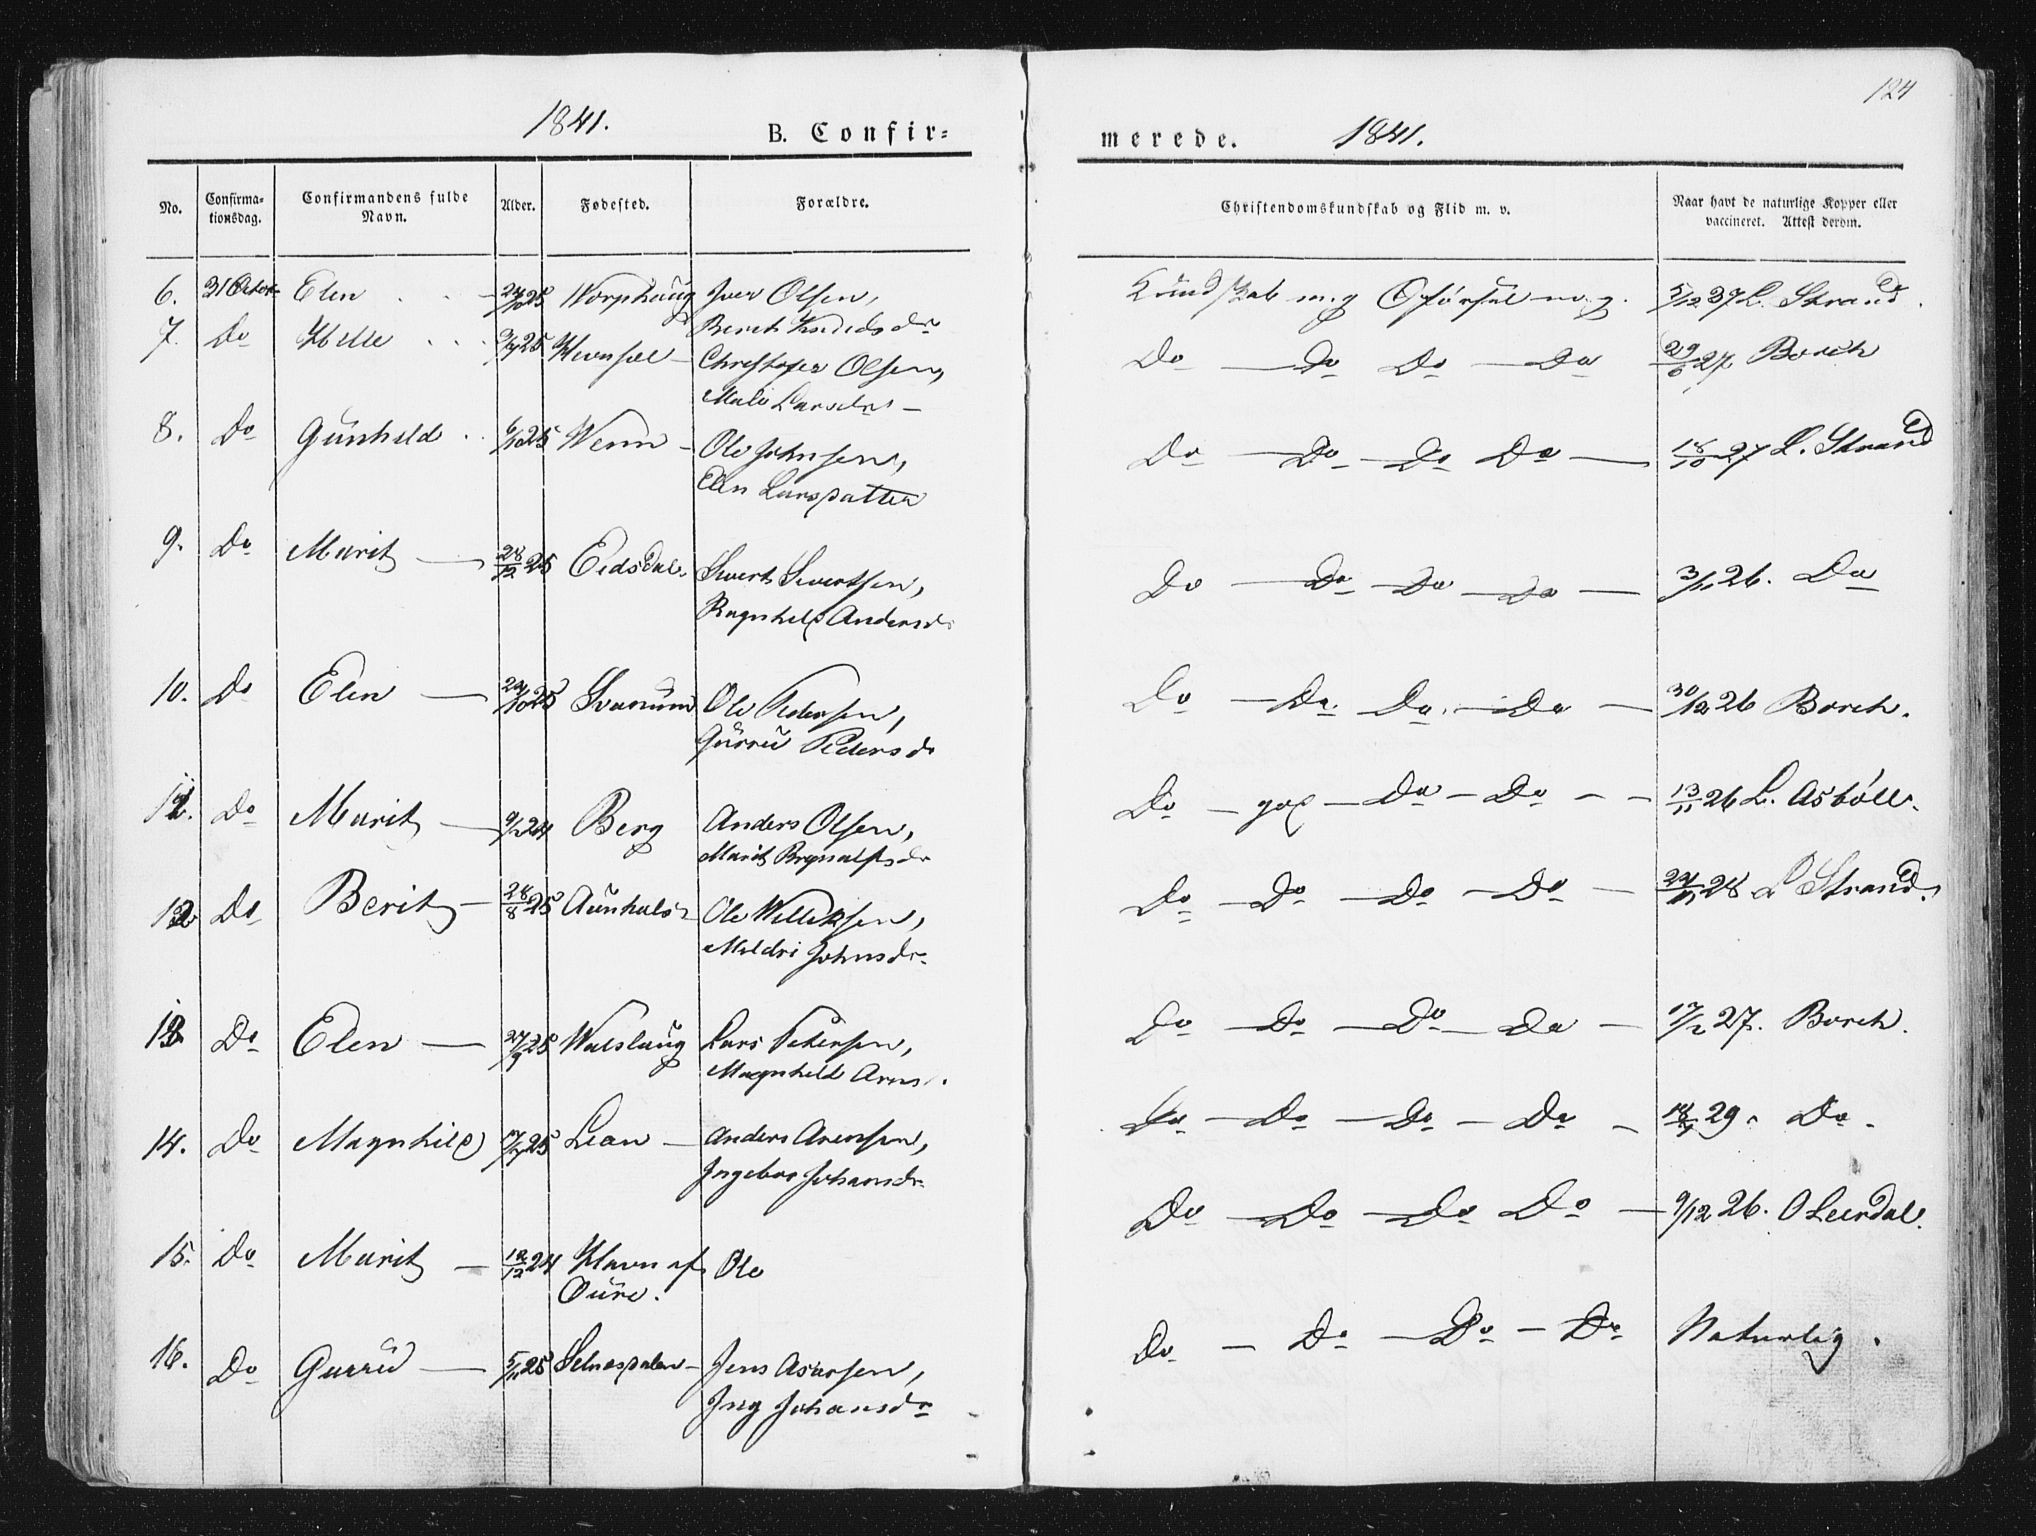 124
1841.
B. Confir=
merede.
1841.
No.
Confirma-
tionsdag.
Confirmandens fulde
Navn.
Alder.
Fødested.
Forældre.
Christendomskundskab og Flid m. v.
Naar havt de naturlige Kopper eller
vaccineret. Attest derom.
6. 31 Octob Elen 25 Worphaug Iver Olsen,
Beret
Kundskab m. g Opførsel m. g. 5/12 37 L. Strand.
7. Do 25 Christopher Olsen,
Mali Larsdr
Do Do Do Do 27 Borch
8. Do Gunhild 25 Wenn Ole Johnsen,
Elen Larsdatter
Do Do Do Do 18/10 27 L. Strand
9. Do Marit 28/12 25 Eidsdal Sivert Sivertsen,
Ragnhild Andersd
Do Do Do Do 26. Do
10. Do Elen 25 Svanum Ole Pedersen,
Gurru Pedersd
Do Do Do Do 30/12 26 Borch.
11. Do Marit 24 Berg Anders Olsen,
Marit
Do god Do Do 13/11 26 L. Asbøll.
12 Do Berit 28/8 25 Aunhals Ole Willeksen,
Meldri Johnsdr
Do Do Do Do 28 L Strand.
13 Do Elen 27/9 25 Walslaug Lars Petersen,
Magnhild Arns
Do Do Do Do 27. Borch.
14. Do Magnhild 25 Lian Anders Arensen,
Ingebor Johansdr
Do Do Do Do 29. Do
15. Do Marit 24 Havn af Ole
Oure.
Do Do Do Do 9/12 26. O Leerdal.
16. Do Gurru 5/11 25 Selnesdalen Jens Asarsen,
Ing Johansdr
Do Do Do Do Naturlig.